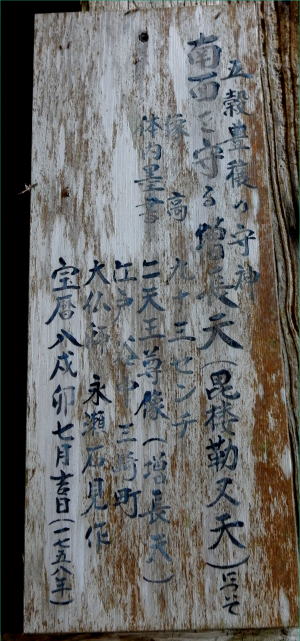 五穀豊穣の守神
南面を守る増長天(毘楼勒叉天)にて
像高 九十三センチ
体内墨書 二天王尊像(増長天)
江戸谷中三崎町
大仏師 永瀬石見作
宝暦八戊卯七月吉日(一七五八年)